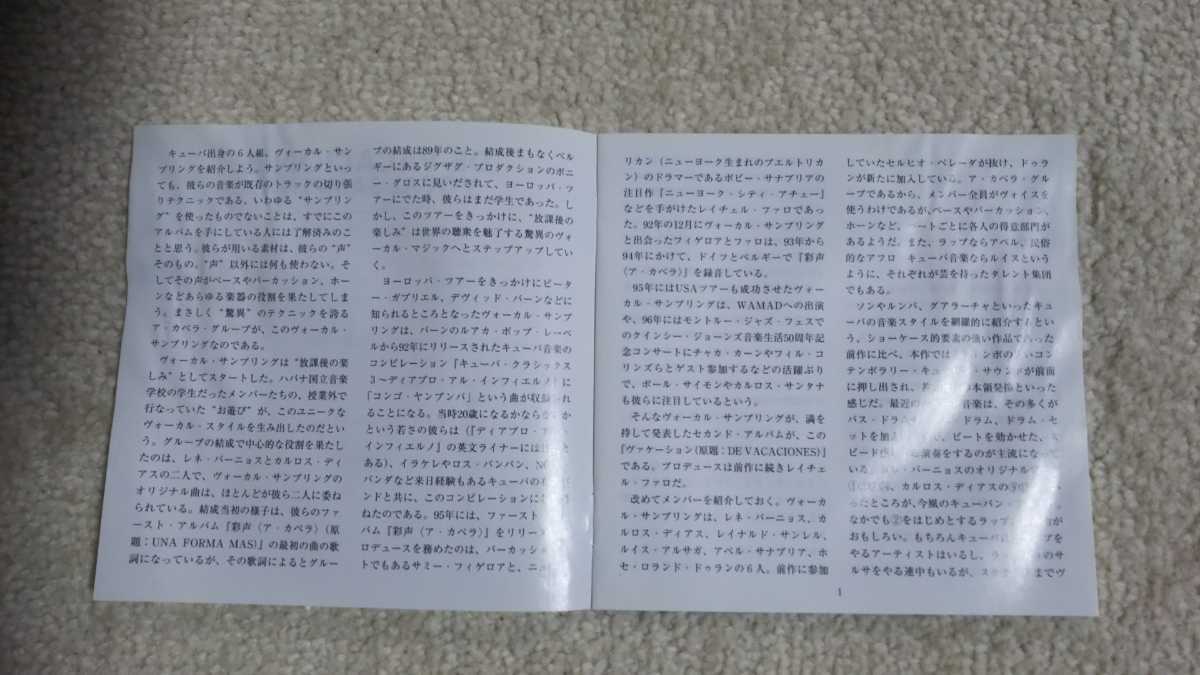 キューバ出身の6人組、ヴォーカル・サン
プリングを紹介しよう。サンプリングといっ
ても、彼らの音楽が既存のトラックの切り張
りテクニックである、いわゆる“サンプリン
グ”を使ったものでないことは、すでにこの
アルバムを手にしている人には了解済みのこ
とと思う。彼らが用いる素材は、彼らの“声”
そのもの。“声”以外には何も使わない。そ
してその声がベースやパーカッション、ホー
ンなどあらゆる楽器の役割を果たしてしま
う。まさしく“驚異”のテクニックを誇る
ア・カペラ・グループが、このヴォーカル・
サンプリングなのである。
ヴォーカル・サンプリングは“放課後の楽
しみ”としてスタートした。ハバナ国立音楽
学校の学生だったメンバーたちの、授業外で
行なっていた“お遊び”が、このユニークな
ヴォーカル・スタイルを生み出したのだとい
う。グループの結成で中心的な役割を果たし
たのは、レネ・バーニョスとカルロス・ディ
アスの二人で、ヴォーカル・サンプリングの
オリジナル曲は、ほとんどが彼ら二人に委ね
られている。結成当初の様子は、彼らのファ
ースト・アルバム『彩声〈ア・カペラ〉(原
題:UNA FORMA MAS)』の最初の曲の歌
詞になっているが、その歌詞によるとグルー
プの結成は89年のこと。結成後まもなくベル
ギーにあるジグザグ・プロダクションのボニ
ー・グロスに見いだされて、ヨーロッパ・ツ
アーにでた時、彼らはまだ学生であった。し
かし、このツアーをきっかけに、“放課後の
楽しみ”は世界の聴衆を魅了する驚異のヴォ
ーカル・マジックへとステップアップしてい
く。
ヨーロッパ・ツアーをきっかけにピータ
ー・ガブリエル、デヴィッド・バーンなどに
知られるところとなったヴォーカル・サンプ
リングは、バーンのルアカ・ポップ・レーベ
ルから92年にリリースされたキューバ音楽の
コンピレーション『キューバ・クラシックス
3〜ディアブロ・アル・インフィエルノ』に
「コンゴ・ヤンブンバ」という曲が収録
ることになる。当時20歳になるかなら か
という若さの彼らは(『ディアブロ・ア
インフィエルノ』の英文ライナーには
ある)、イラケレやロス・バンバン、NG
バンダなど来日経験もあるキューバの
ンドと共に、このコンピレーションに
ねたのである。95年には、ファースト
バム『彩声〈ア・カペラ〉』をリリー
ロデュースを務めたのは、パーカッシ
トでもあるサミー・フィゲロアと、ニュ
リカン(ニューヨーク生まれのプエルトリカ
ン)のドラマーであるボビー・サナブリアの
注目作『ニューヨーク・シティ・アチェー』
などを手がけたレイチェル・ファロであっ
た。92年の12月にヴォーカル・サンプリング
と出会ったフィゲロアとファロは、93年から
94年にかけて、ドイツとベルギーで『彩声
〈ア・カペラ〉』を録音している。
95年にはUSAツアーも成功させたヴォー
カル・サンプリングは、WAMADへの出演
や、96年にはモントルー・ジャズ・フェスで
のクインシー・ジョーンズ音楽生活50周年記
念コンサートにチャカ・カーンやフィル・コ
リンズらとゲスト参加するなどの活躍ぶり
で、ポール・サイモンやカルロス・サンタナ
も彼らに注目しているという。
そんなヴォーカル・サンプリングが、満を
持して発表したセカンド・アルバムが、この
『ヴァケーション(原題:DE VACACIONES)』
である。プロデュースは前作に続きレイチェ
ル・ファロだ。
改めてメンバーを紹介しておく。ヴォーカ
ル・サンプリングは、レネ・バーニョス、カ
ルロス・ディアス、レイナルド・サンレル、
ルイス・アルサガ、アベル・サナブリア、ホ
セ・ロランド・ドゥランの6人。前作に参加
していたセルヒオ・ペレーダが抜け、ドゥラ
ンが新たに加入している。ア・カペラ・グル
ープであるから、メンバー全員がヴォイスを
使うわけであるが、ベースやパーカッション、
ホーンなど、パートごとに各人の得意部門が
あるようだ。また、ラップならアベル、民俗
的なアフロ キューバ音楽ならルイスという
ように、それぞれが芸を持ったタレント集団
でもある。
ソンやルンバ、グアラーチャといったキュ
ーバの音楽スタイルを網羅的に紹介するとい
う、ショーケース的要素の強い作品であった
前作に比べ、本作では テンポの いコン
テンポラリー・キュー ・サウンドが前面
に押し出され、 本領発揮といった
感じだ。最近の 音楽は、その多くが
バス・ドラム ドラム、ドラム・セ
ットを加 、ビートを効かせた、ス
ピード 演奏をするのが主流になって
いる。 ・バーニョスのオリジナル
、カルロス・ディアスの
ったところが、今風のキューバン・
なかでも②をはじめとするラップ が
おもしろい。もちろんキューバに プを
やるアーティストはいるし、ラ のサ
ルサをやる連中もいるが、ス までヴ
1